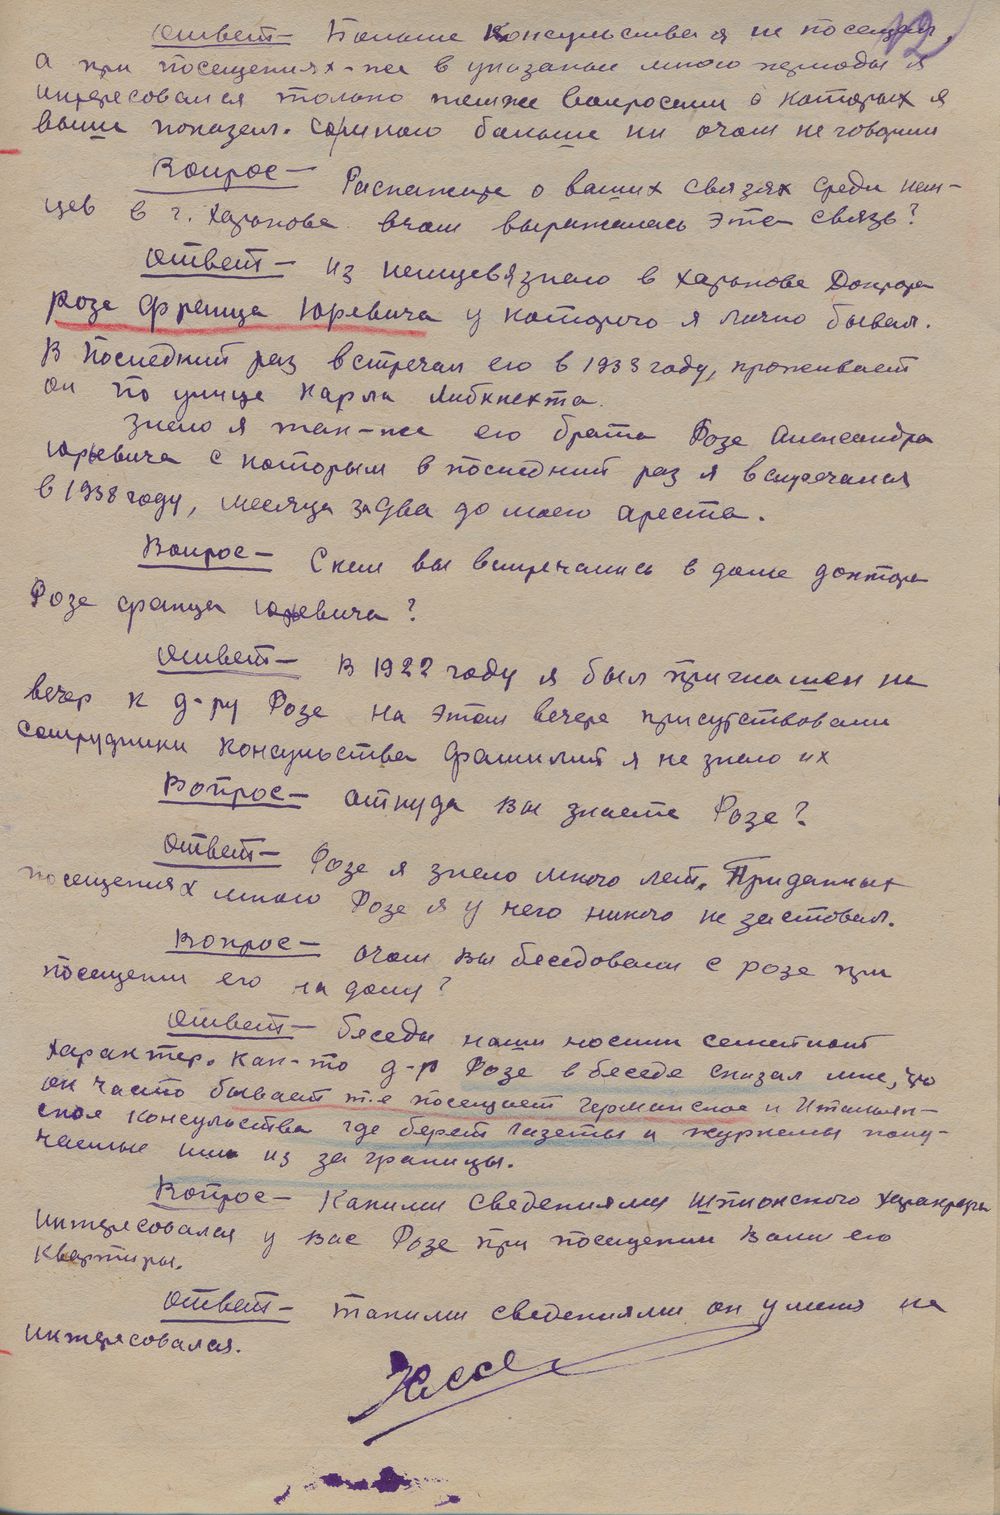 12
Ответ — Больше консульства я не посещал,
а при посещениях-же в указаные мною периоды я
интересовался только темже вопросами о которых я
выше показал. Сомною больше ни очом не говорили
Вопрос — Раскажите о ваших связях среди нем-
цев в г. Харькове вчом выражалась эта связь?
Ответ — Из немцев я знаю в Харькове Доктора
Розе Франца Юревича у которого я лично бывал.
В последний раз встречал его в 1933 году, проживает
он по улице Карла Либкнехта.
Знаю я так-же его брата Розе Александра
Юрьевича с которым в последний раз я встречался
в 1938 году, месяца за два до моего ареста.
Вопрос — С кем вы встречались в доме доктора
Розе Франца Юревича?
Ответ — В 1922 году я был приглашен на
вечер к д-ру Розе на этом вечере присутствовали
сотрудники консульства фамилий я не знаю их
Вопрос — Откуда вы знаете Розе?
Ответ — Розе я знаю много лет. При данных
посещениях мною Розе я у него никого не заставал.
Вопрос — Очом вы беседовали с розе при
посещении его на дому?
Ответ — Беседы наши носили семейный
характер. Как-то д-р Розе в беседе сказал мне, что
он часто бывает т.е посещает Германское и Итальян-
ское консульства где берет газеты и журналы полу-
чаемые ими из за границы.
Вопрос — Какими сведениями шпионского характера
интересовался у вас Розе при посещении вами его
квартиры.
Ответ — Такими сведениями он у меня не
интересовался.